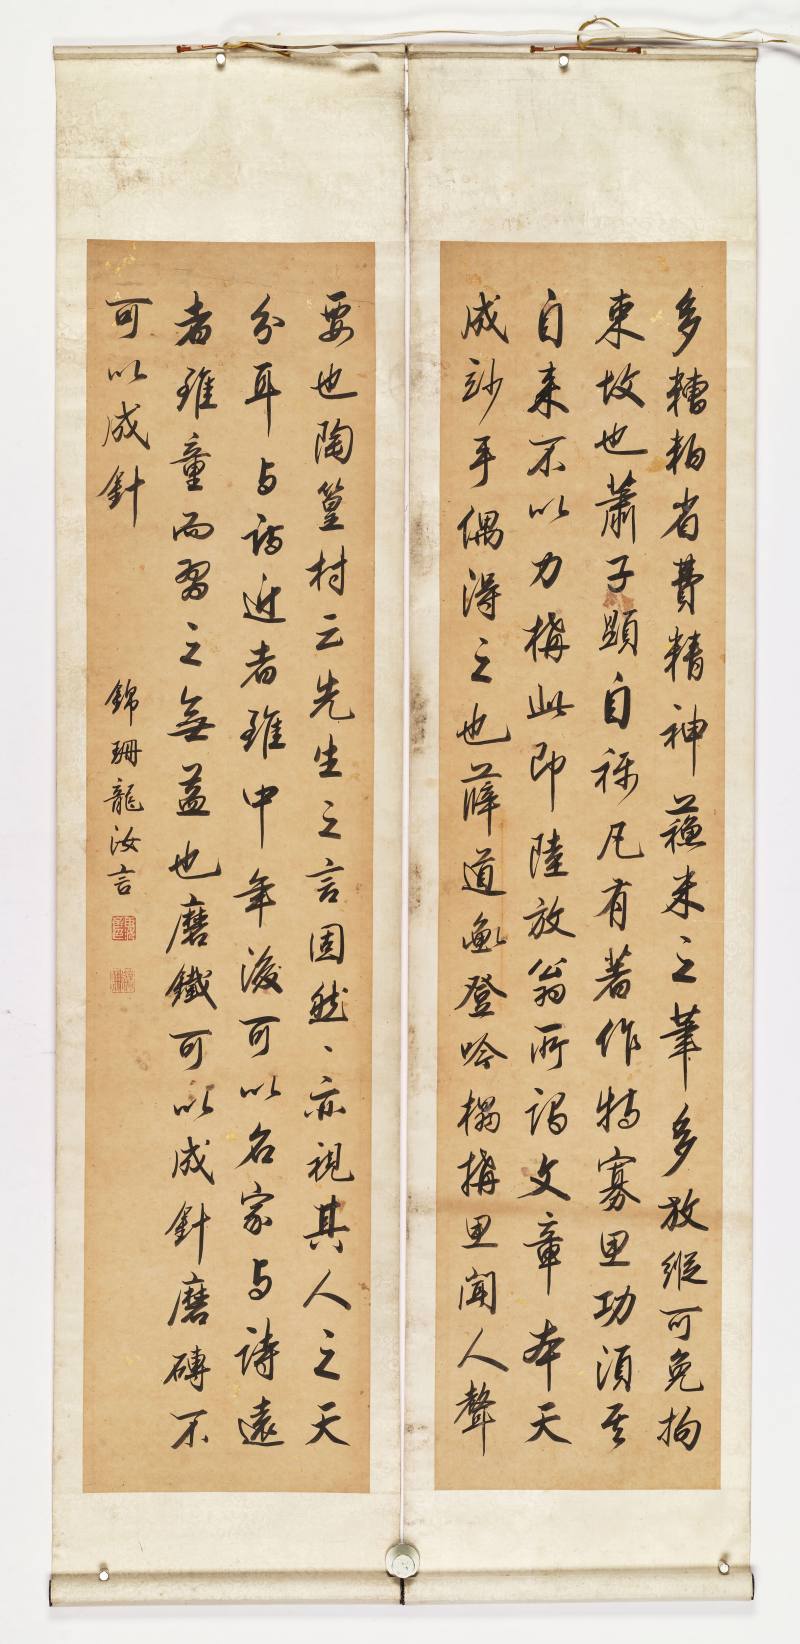 多糟粕省費精神蘇米之筆多放縱可免拘
束故也蕭子顯自稱凡有著作特寡思功須其
自来不以力構此即陸放翁所謂文章本天
成妙手偶得之也薛道衡登吟榻搆思聞人聲
要也陶篁村云先生之言固然、亦視其人之天
分耳与詩近者雖中年後可以名家与詩遠
者雖童而習之無益也磨鐵可以成針磨磚不
可以成針
錦珊龍汝言